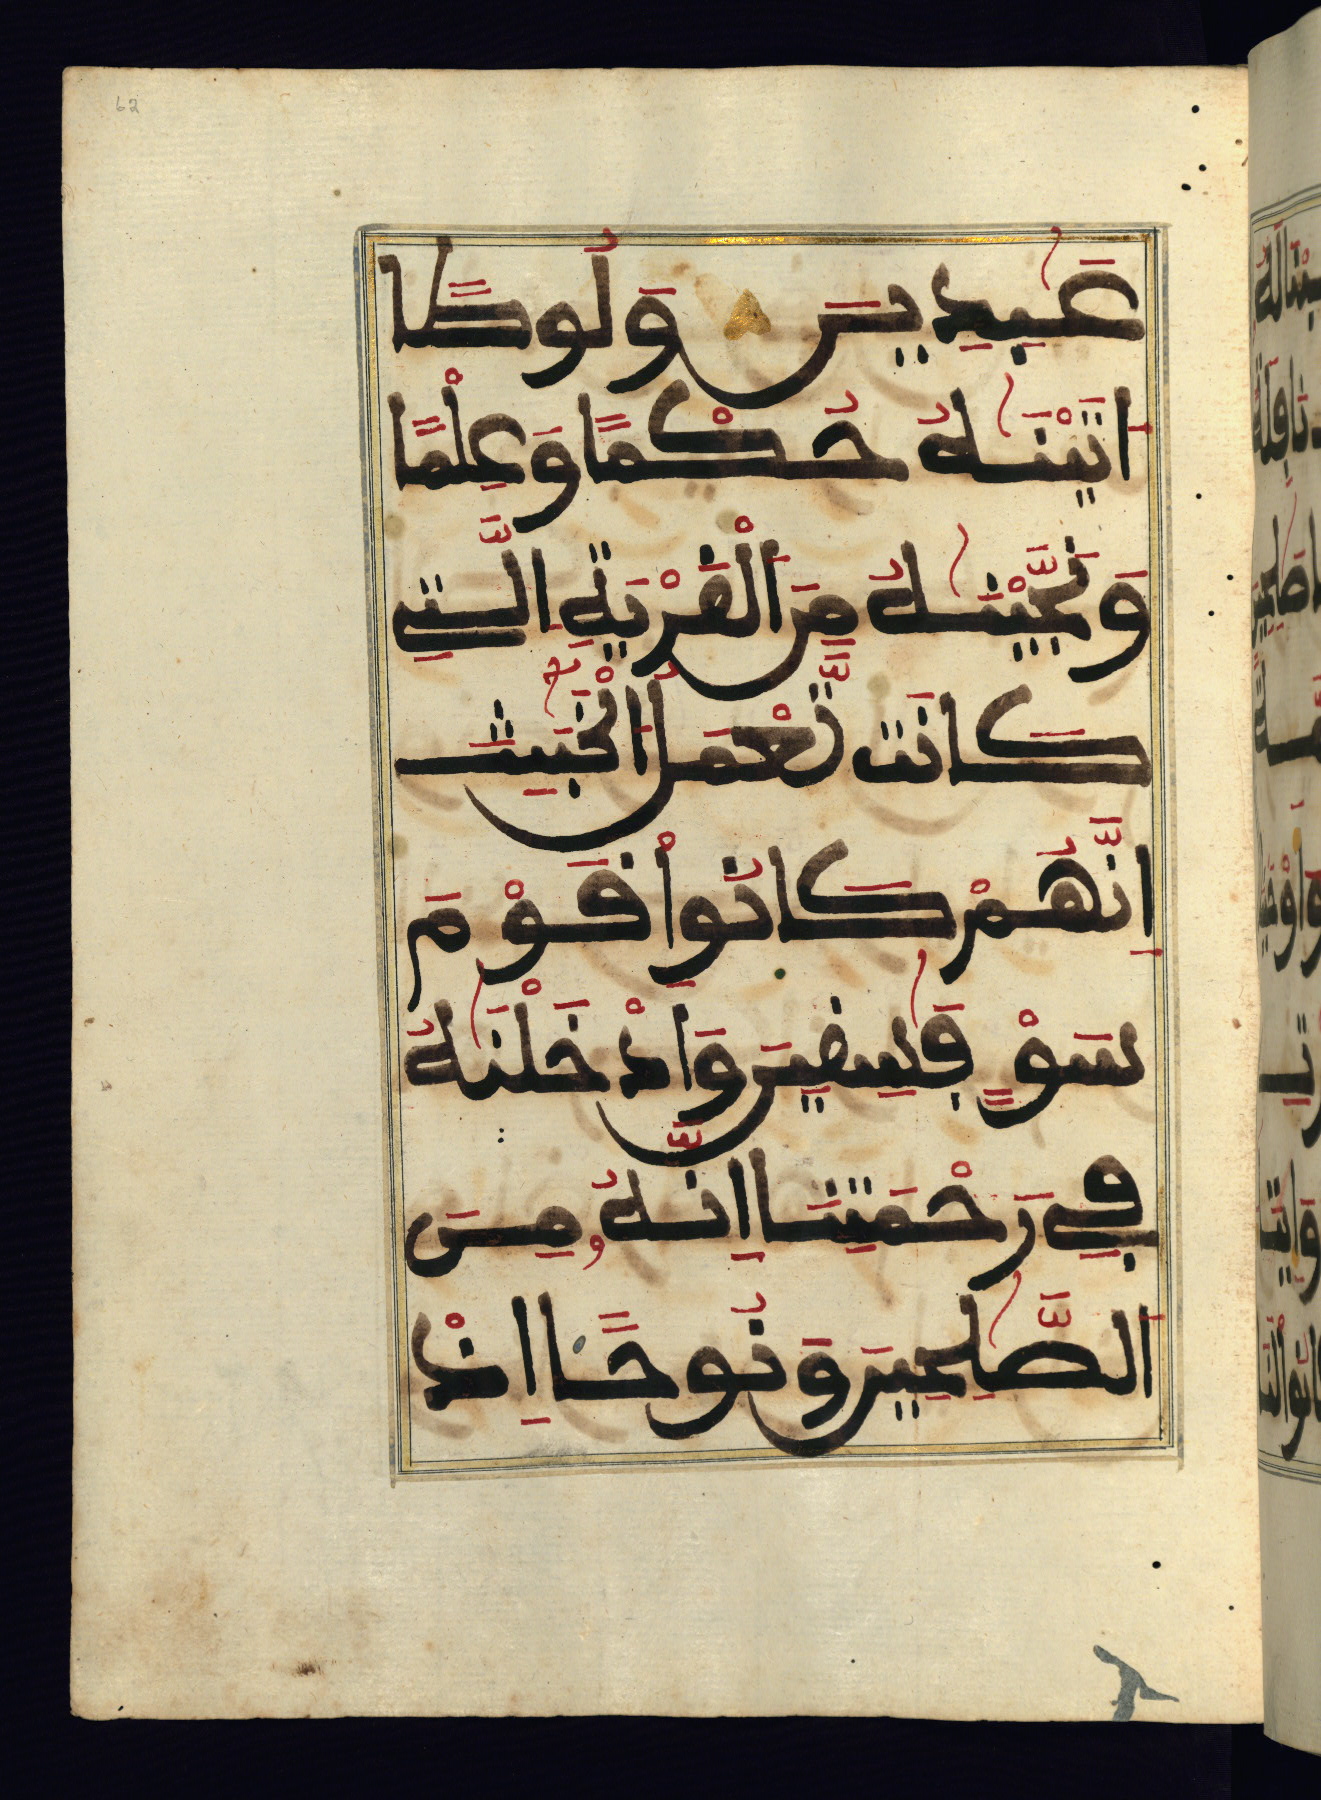 62
عَٰبِدِينَ وَلُوطًا
اتَيْنَٰهُ حُكْمًا وَعِلْمًا
وَنَجَّيْنَٰهُ مِنَ الْقَرْيَةِ الَّتِي
كَانَت تَّعْمَلُ الْخَبَٰٓئِثَ
إِنَّهُمْ كَانُواْ قَوْمَ
سَوْءٍ فَٰسِقِينَ وَأَدْخَلْنَٰهُ
فِي رَحْمَتِنَا إِنَّهُۥ مِنَ
الصَّٰلِحِينَ وَنُوحًا إِذْ